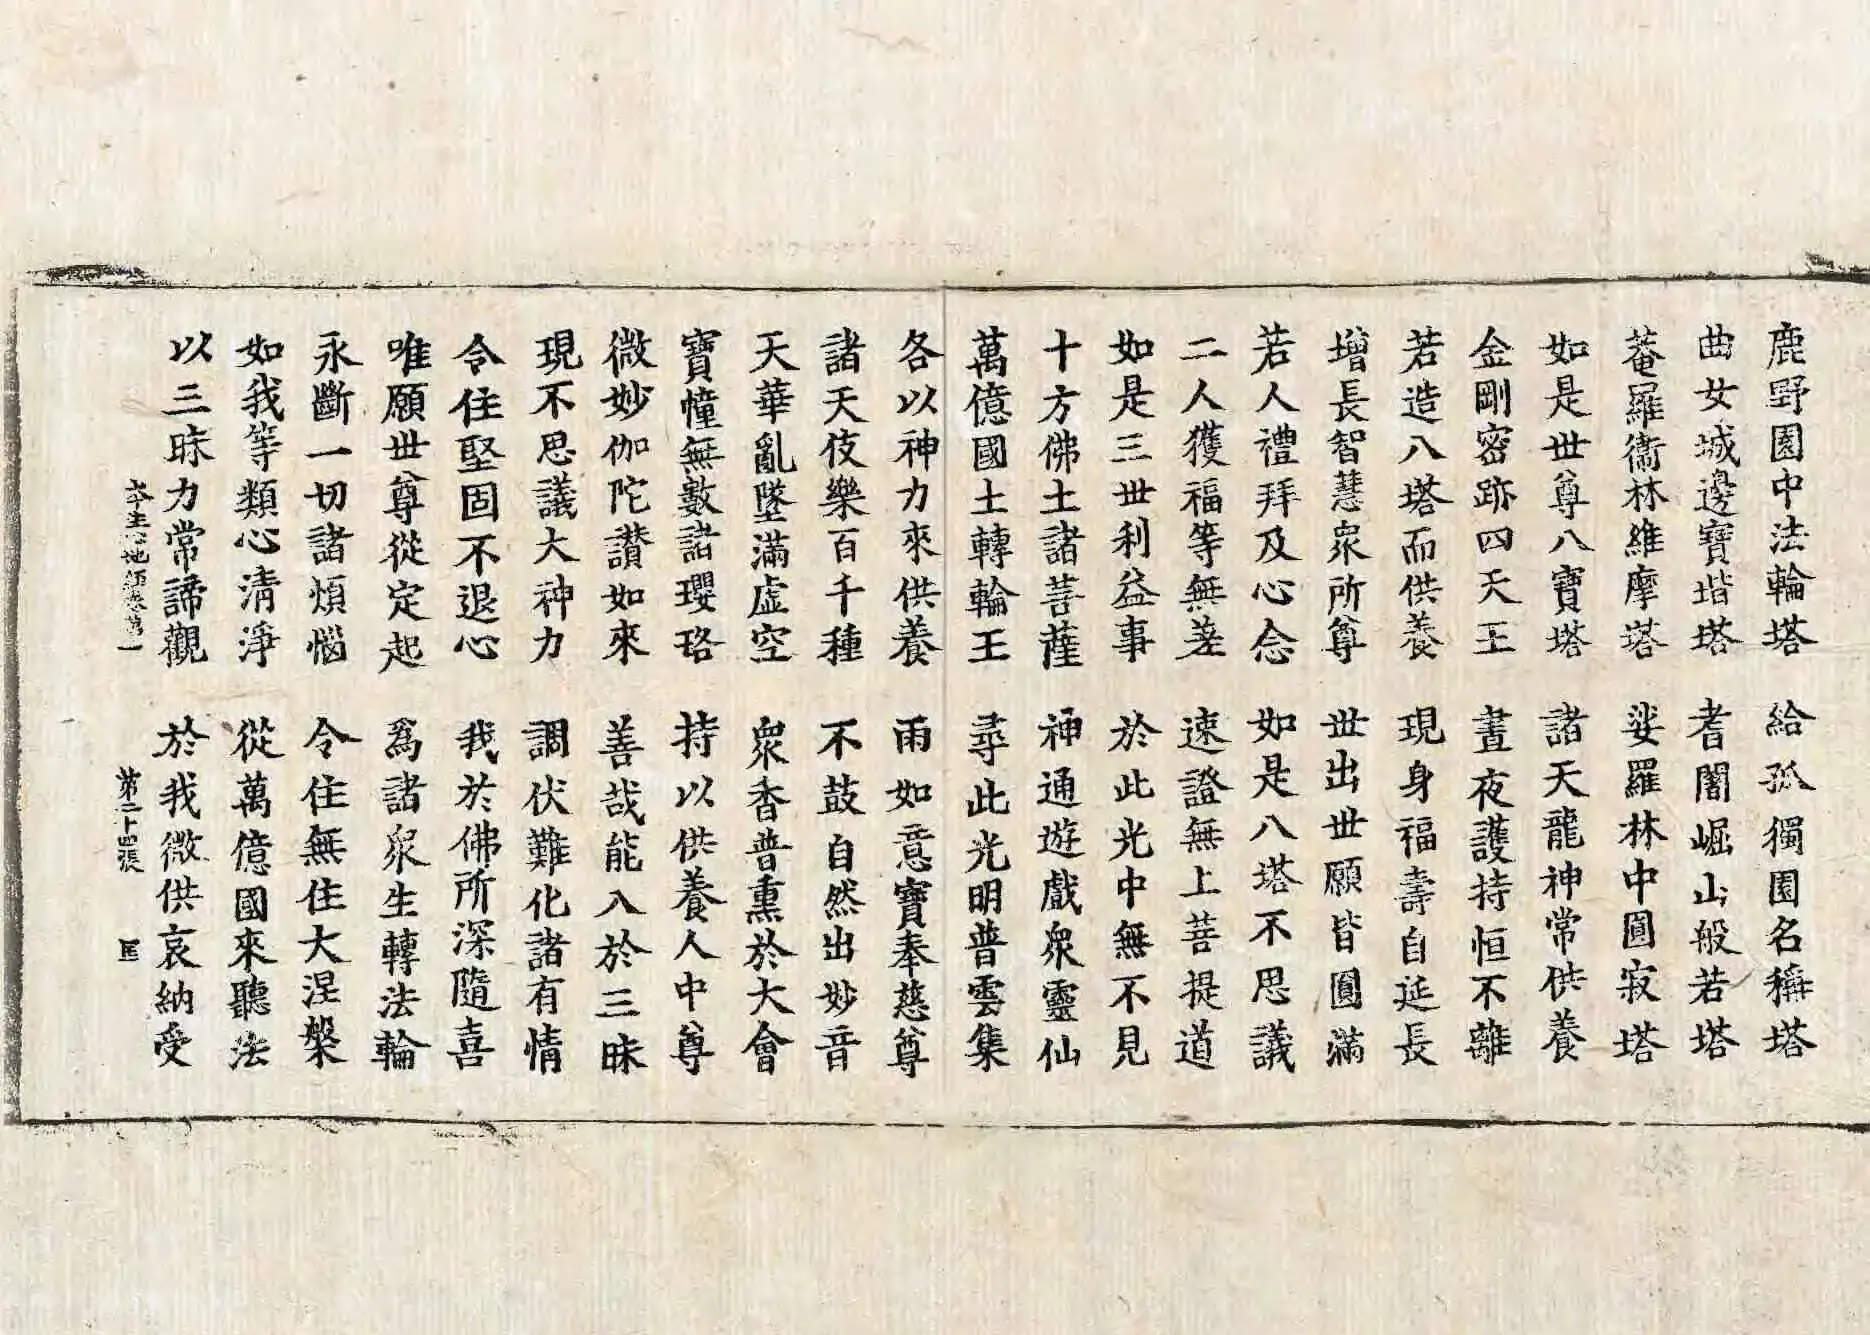 鹿野園中法輪塔 給孤獨園名稱塔
曲女城邊寶堦塔 耆闍崛山般若塔
菴羅衞林維摩塔 娑羅林中圓寂塔
如是世尊八寶塔 諸天龍神常供養
金剛密跡四天王 晝夜護持恒不離
若造八塔而供養 現身福壽自延長
增長智慧衆所尊 世出世願皆圓滿
若人禮拜及心念 如是八塔不思議
二人獲福等無差 速證無上菩提道
如是三世利益事 於此光中無不見
十方佛土諸菩薩 神通遊戲衆靈仙
萬億國土轉輪王 尋此光明普雲集
各以神力來供養 雨如意寶奉慈尊
諸天伎樂百千種 不鼓自然出妙音
天華亂墜滿虛空 衆香普熏於大會
寶幢無數諸瓔珞 持以供養人中尊
微妙伽陀讚如來 善哉能入於三昧
現不思議大神力 調伏難化諸有情
令住堅固不退心 我於佛所深隨喜
唯願世尊從定起 爲諸衆生轉法輪
永斷一切諸煩惱 令住無住大涅槃
如我等類心清淨 從萬億國來聽法
以三昧力常諦觀 於我微供哀納受
本生心地經卷第一 第二十四張